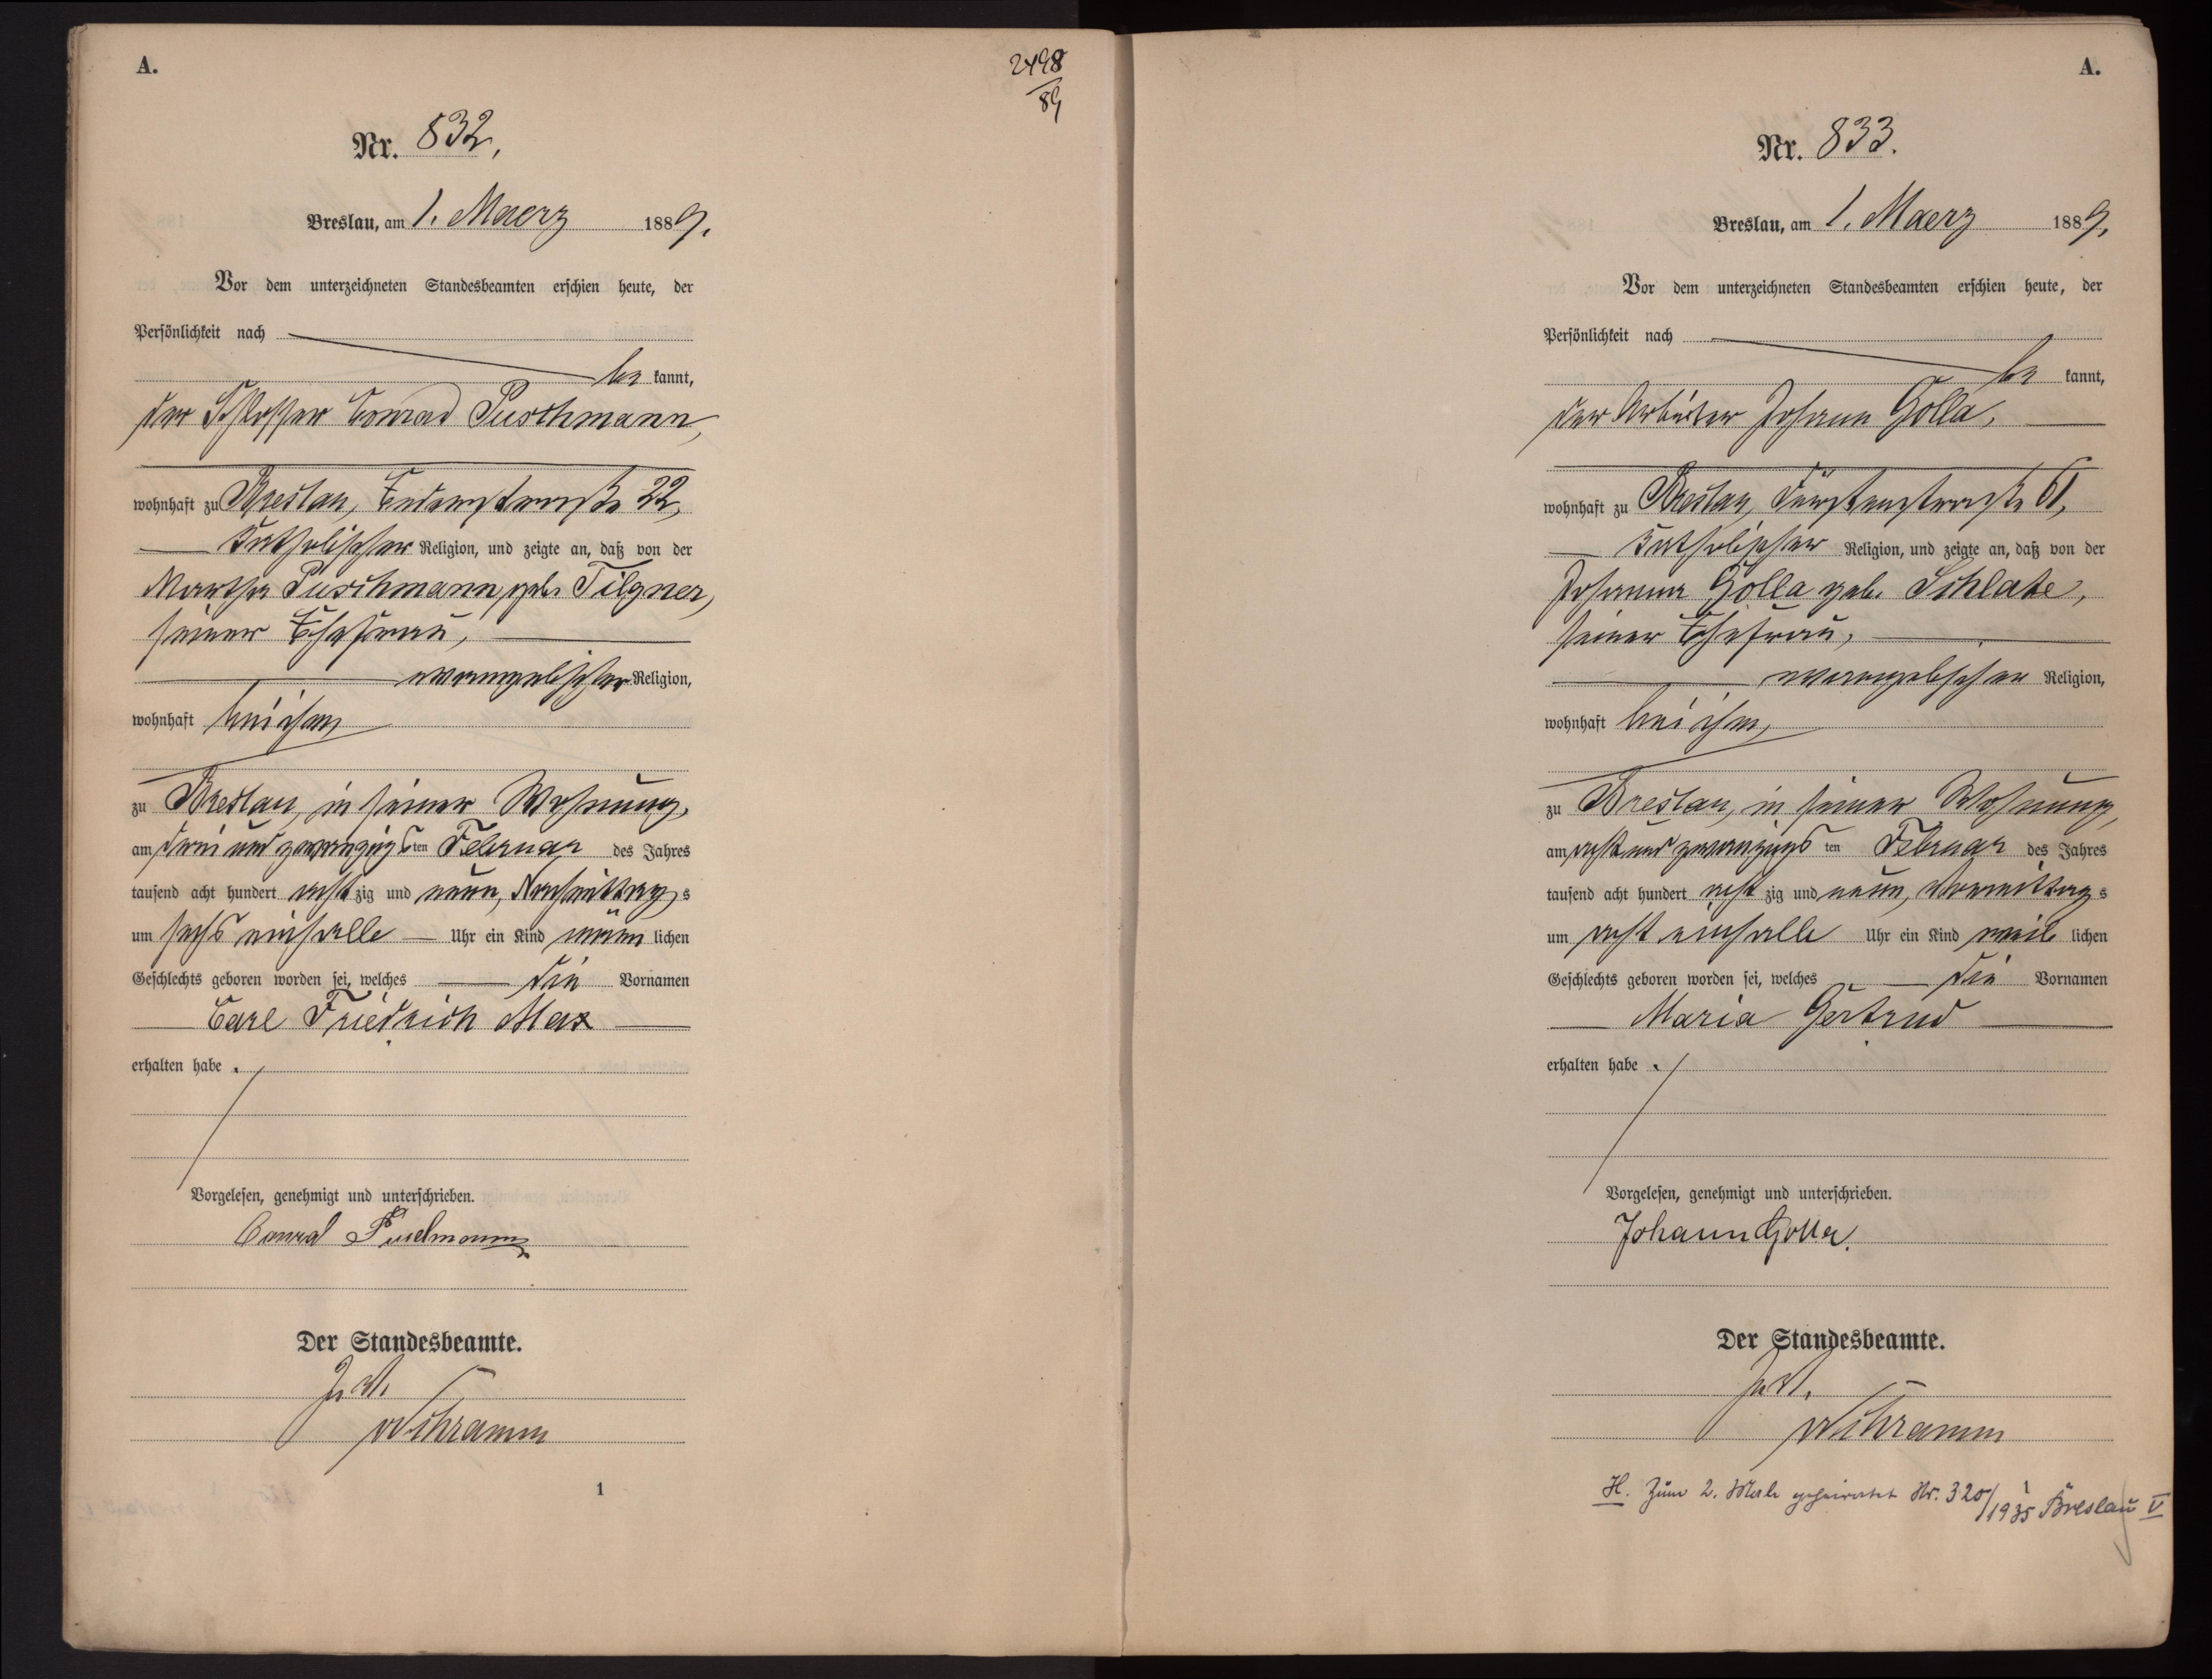 A.
2498
89
Nr. 832,
Breslau, am 1. Maerz 1889.
Vor dem unterzeichneten Standesbeamten erschien heute, der
Persönlichkeit nach
be kannt,
der Schlosser Conrad Puschmann,
wohnhaft zu Breslau, 22,
katholischer Religion, und zeigte an, daß von der
Martha Puschmann, geb. Tilgner,
seiner Ehefrau,
evangelischer Religion,
wohnhaft bei ihm,
zu Breslau, in seiner Wohnung,
am drei und zwanzigs ten Februar des Jahres
tausend acht hundert acht zig und neun, Nachmittag s
um sechs einhalb Uhr ein Kind männ lichen
Geschlechts geboren worden sei, welches die Vornamen
Carl Friedrich Max
erhalten habe.
Vorgelesen, genehmigt und unterschrieben.
Conrad Puschmann
Der Standesbeamte.
In V.
1
A.
Nr. 833.
Breslau, am 1. Maerz 1889,
Vor dem unterzeichneten Standesbeamten erschien heute, der
Persönlichkeit nach
be kannt,
der Arbeiter Johann Golla,
wohnhaft zu Breslau, Fürstenstraße 61,
katholischer Religion, und zeigte an, daß von der
Johanna Golla geb. Schlabe,
seiner Ehefrau,
evangelischer Religion,
wohnhaft bei ihm,
zu Breslau, in seiner Wohnung,
am acht und zwanzigs ten Februar des Jahres
tausend acht hundert acht zig und neun, Vormittag s
um acht einhalb Uhr ein Kind weib lichen
Geschlechts geboren worden sei, welches die Vornamen
Maria Gertrud
erhalten habe.
Vorgelesen, genehmigt und unterschrieben.
Johann Golla.
Der Standesbeamte.
In V.
H. Zum 2. Male geheiratet Nr. 320/1935 Breslau V